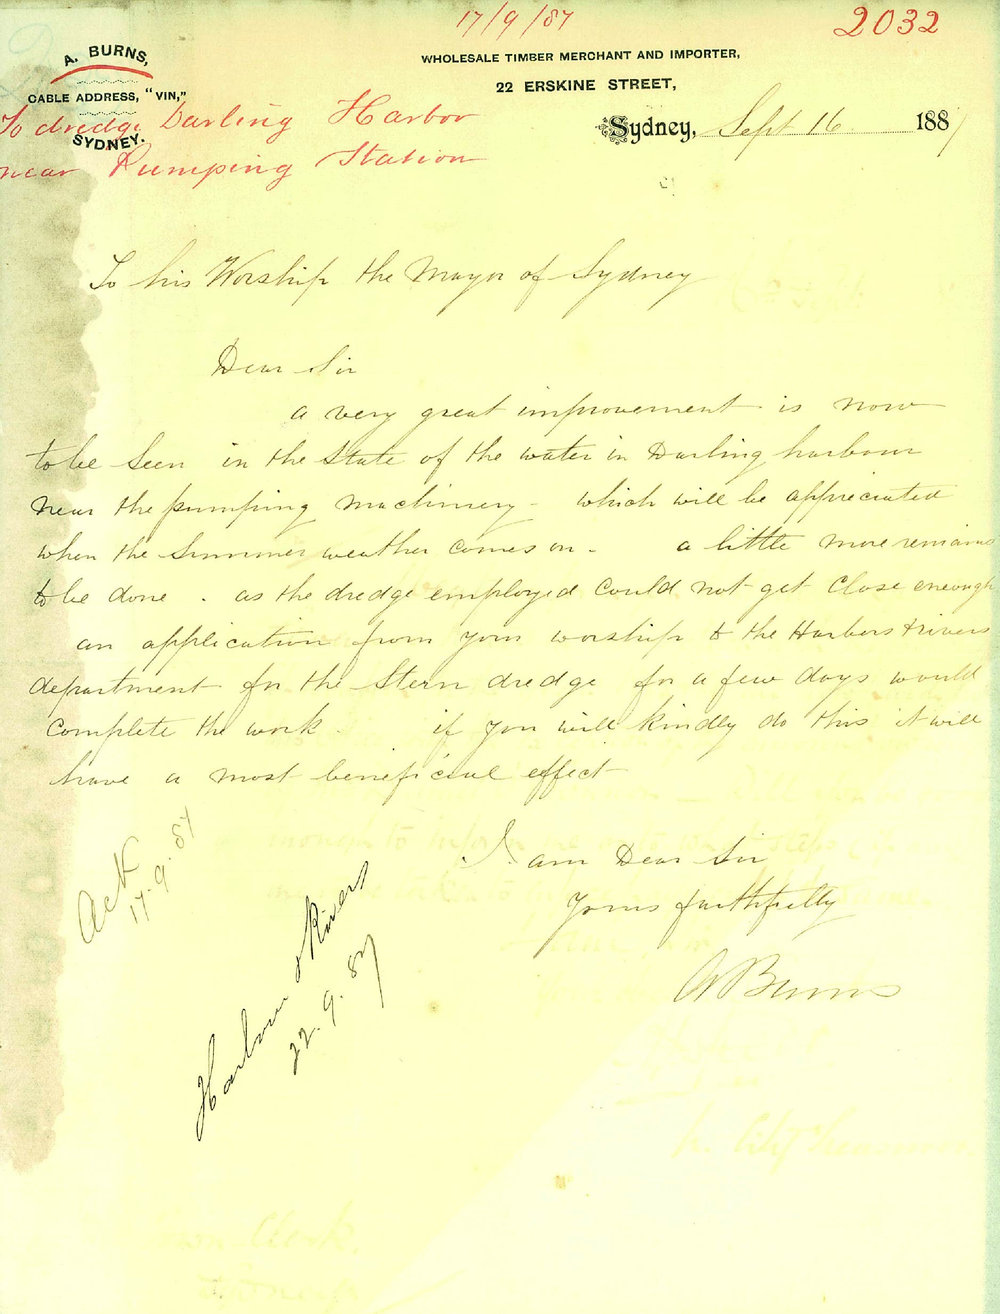 17/9/87
2032
A. BURNS,
CABLE ADDRESS, "VIN,"
SYDNEY.
WHOLESALE TIMBER MERCHANT AND IMPORTER,
22 ERSKINE STREET,
Sydney, Sept 16 1887
To dredge Darling Harbor
near Pumping Station
To his Worship the Mayor of Sydney
Dear Sir
a very great improvement is now
to be seen in the State of the water in Darling harbour
near the pumping machinery - which will be appreciated
when the summer weather comes on - a little more remains
to be done . as the dredge employed could not get close enough
an application from your worship to the Harbors & rivers
department for the Stern dredge for a few days would
complete the work . if you will kindly do this it will
have a most beneficial effect
I am Dear Sir
Yours faithfully
A Burns
Ack
17.9.87
Harbour & Rivers
22.9.87